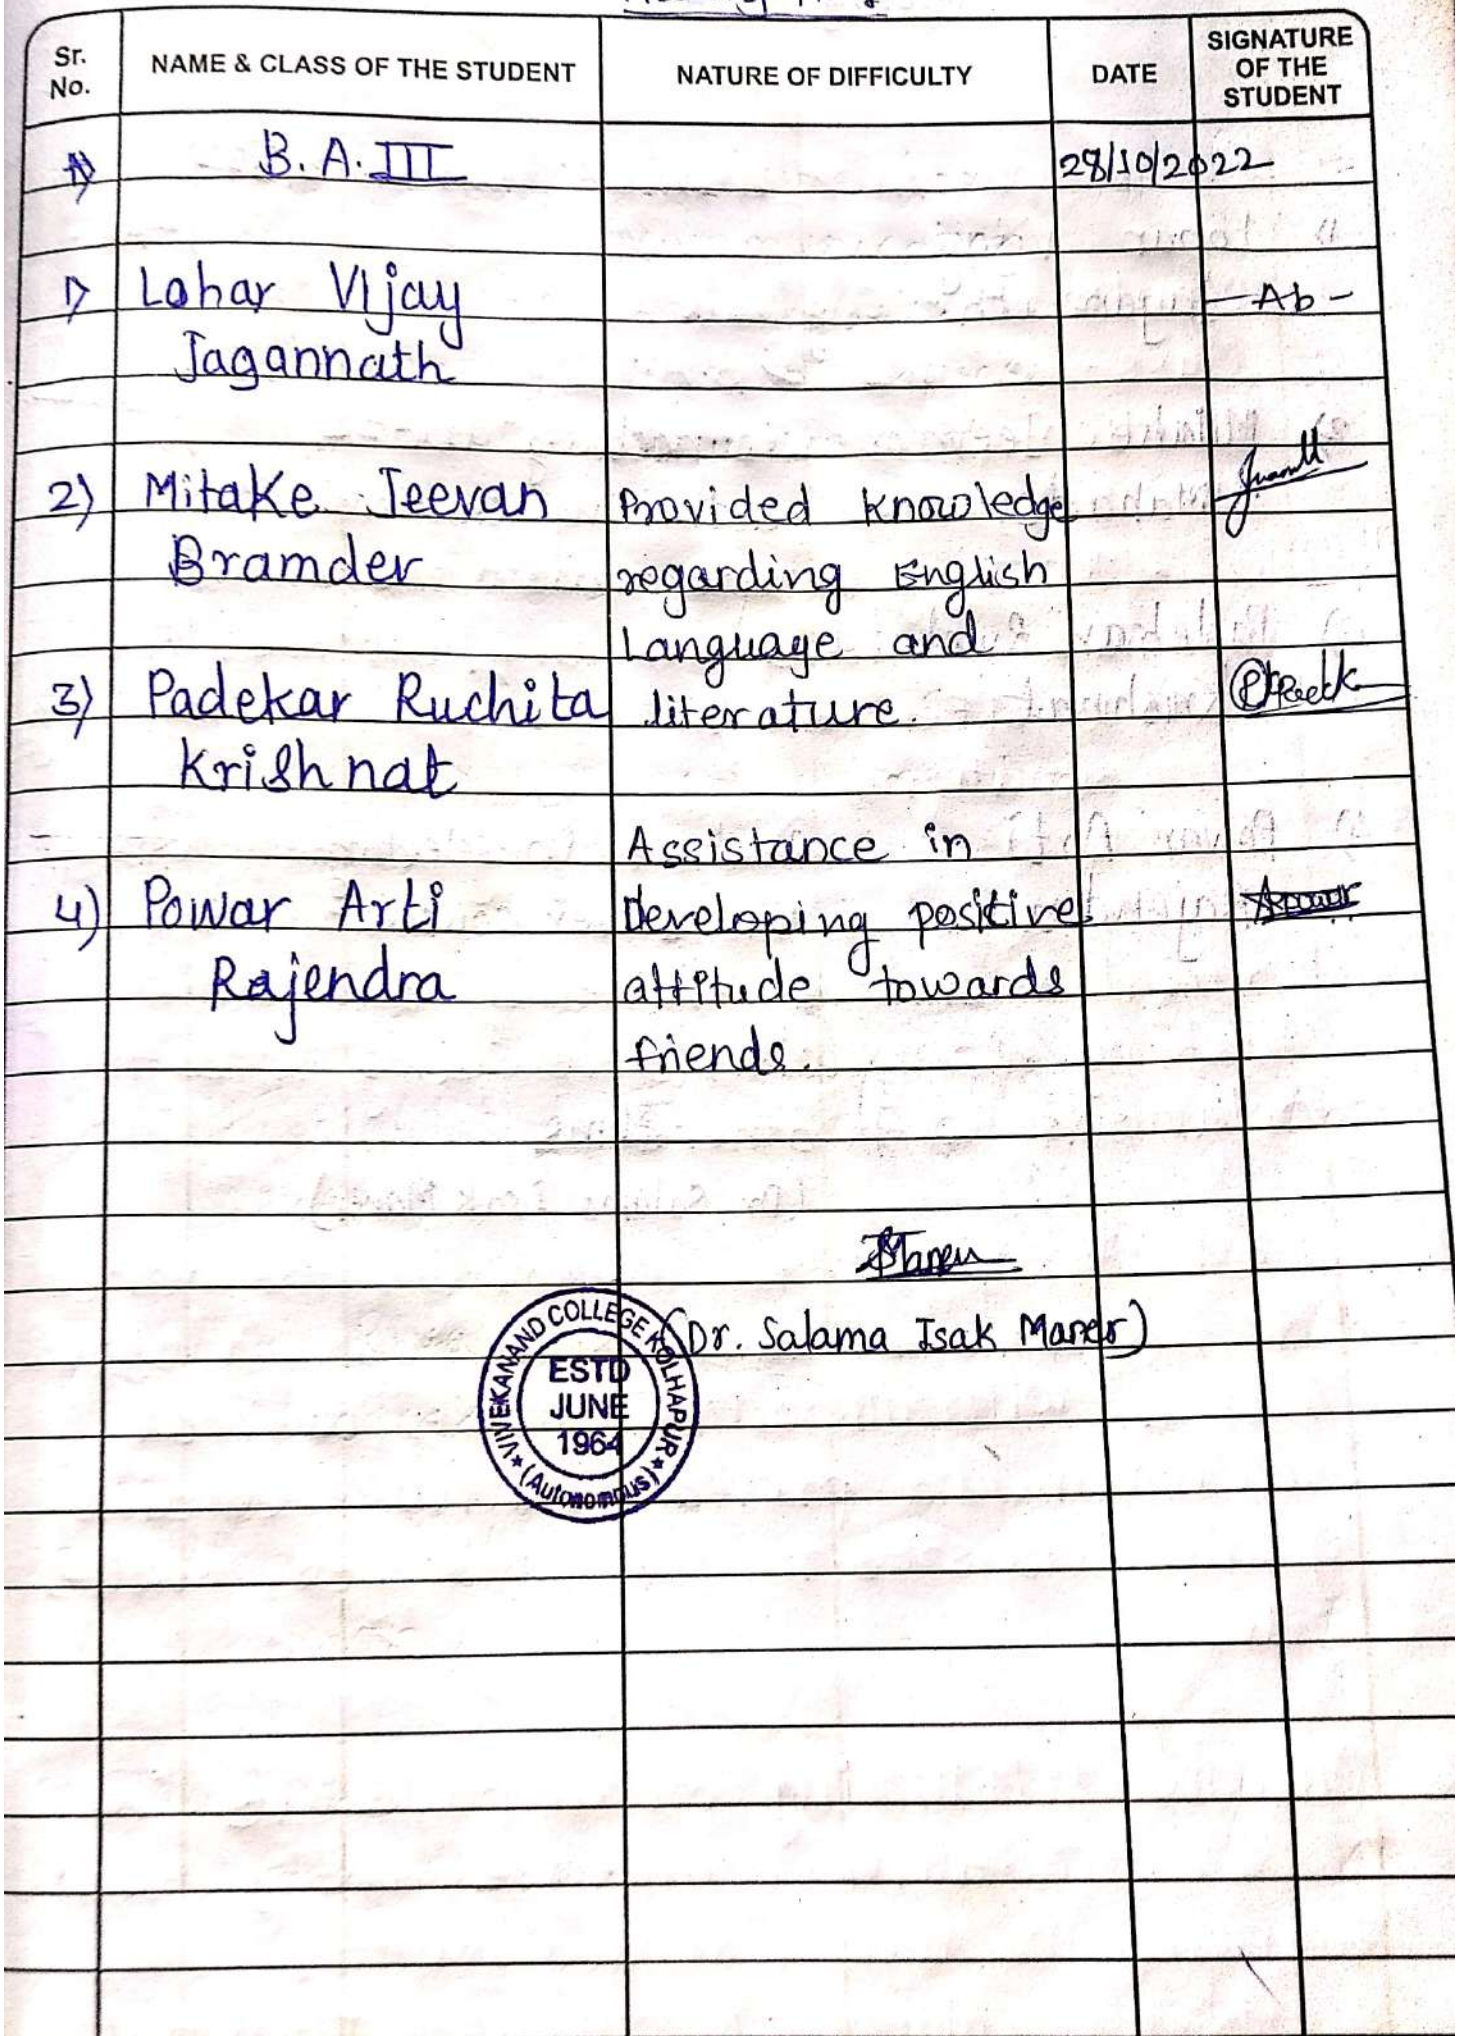 Sr. No.
NAME & CLASS OF THE STUDENT
NATURE OF DIFFICULTY
DATE
SIGNATURE OF THE STUDENT
B. A. III 28/10/2022
1) Lohar Vijay -Ab-
Jagannath
2) Mitake Jeevan Provided knowledge
Bramdev regarding English
Language and
3) Padekar Ruchita literature.
Krishnat
Assistance in
4) Powar Arti Developing positive
Rajendra attitude towards
friends.
(Dr. Salama Isak Maner)
VIVEKANAND COLLEGE KOLHAPUR
(Autonomous)
ESTD
JUNE
1964